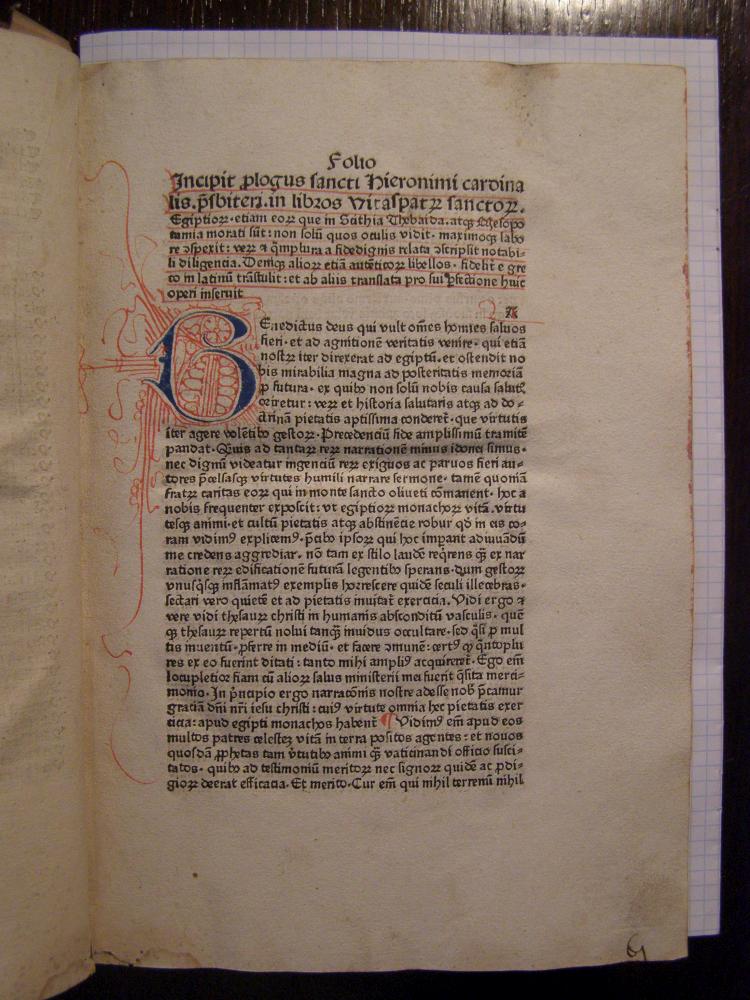 Folio
Incipit ꝓlogus sancti Hieronimi cardina
lis.p̄sbiteri.in libros Vitaspatꝝ sanctoꝝ.
Egiptioꝝ·etiam eoꝝ que in Scithia Thebaida.atqꝫ Mesopo
tamia morati sūt: non solū quos oculis vidit· maximoqꝫ labo
re ꝯspexit: veꝝ ⁊ q̄mplura a fidedignis relata ꝯscripsit notabi-
li diligencia. Deniqꝫ alioꝝ etiā autēticoꝝ libellos· fideliť e gre
co in latinū trāstulit: et ab aliis translata pro sui ꝑfectione huic
operi inseruit
A
Enedictus deus qui vult om̄es homīes saluos
fieri· et ad agnitionē veritatis venire· qui etiā
nostꝝ iter direxerat ad egiptū. et ostendit no
bis mirabilia magna ad posteritatis memoriā
ꝓfutura· ex quibꝰ non solū nobis causa salutꝭ
oriretur: veꝝ et historia salutaris atqꝫ ad do-
ctrinā pietatis aptissima conderet᷑·que virtutis
iter agere volētibꝰ gestoꝝ·Precedenciū fide amplissimū tramitē
pandat·Quis ad tantaꝝ reꝝ narrationē minus idonei simus·
nec dignū videatur ingenciū reꝝ exiguos ac paruos fieri au-
tores p̄celsasqꝫ virtutes humili narrare sermone· tamē quoniā
fratꝝ caritas eoꝝ qui in monte sancto oliueti cōmanent· hoc a
nobis frequenter exposcit: vt egiptioꝝ monachoꝝ vitā. virtu
tesqꝫ animi·et cultū pietatis atqꝫ abstinētie robur qd̄ in eis co-
ram vidimꝰ explicemꝰ·p̄cibꝰ ipsoꝝ qui hoc imꝑant adiuuādū
me credens aggrediar· nō tam ex stilo laudē req̄rens qꝫ ex nar
ratione reꝝ edificationē futurā legentibꝰ sperans·dum gestoꝝ
vnusq̄sqꝫ inflāmatꝰ exemplis horrescere quidē seculi illecebras·
sectari vero quietē et ad pietatis inuitat᷑ exercicia. Vidi ergo ⁊
vere vidi thesauꝝ christi in humanis absconditū vasculis· quē
qꝫ thesauꝝ repertū nolui tanqꝫ inuidus occultare·sed q̄si ꝓ mul
tis inuentū·ꝓferre in mediū· et facere ꝯmunē: certꝰ qꝫ q̄ntoplu
res ex eo fuerint ditati: tanto mihi ampliꝰ acquireret᷑· Ego em̄
locupletior fiam cū alioꝝ salus ministerii mei fuerit q̄sita merci-
monio·In p̄ncipio ergo narratōnis nostre adesse nob̄ p̄camur
gratiā dn̄i nr̄i iesu christi: cuiꝰ virtute omnia hec pietatis exer
cicia: apud egipti monachos habent᷑ ¶ Vidimꝰ em̄ apud eos
multos patres celestē vitā in terra positos agentes: et nouos
quosdā ꝓphetas tam v̄tutibꝰ animi qꝫ vaticinandi officio susci-
tatos· quibꝰ ad testimoniū meritoꝝ nec signoꝝ quidē ac ꝓdi-
gioꝝ deerat efficacia· Et merito·Cur em̄ qui nihil terrenū nihil